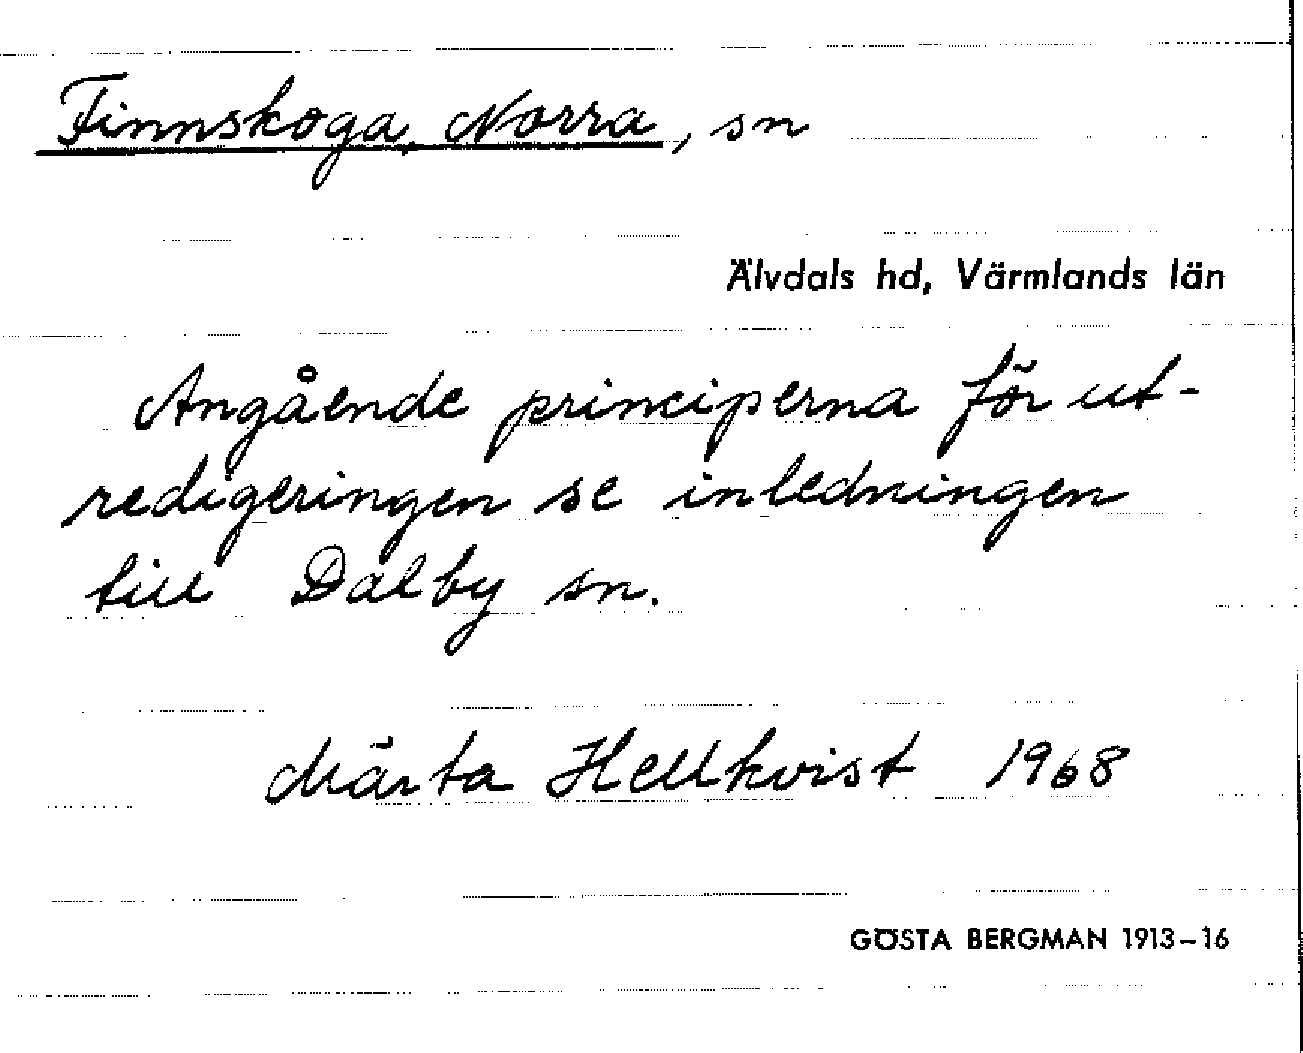 Finnskoga, Norra, sn
Älvdals hd, Värmlands län
Angående principerna för ut-
redigeringen se inledningen
till Dalby sn.
Märta Hellkvist 1968
GÖSTA BERGMAN 1913–16